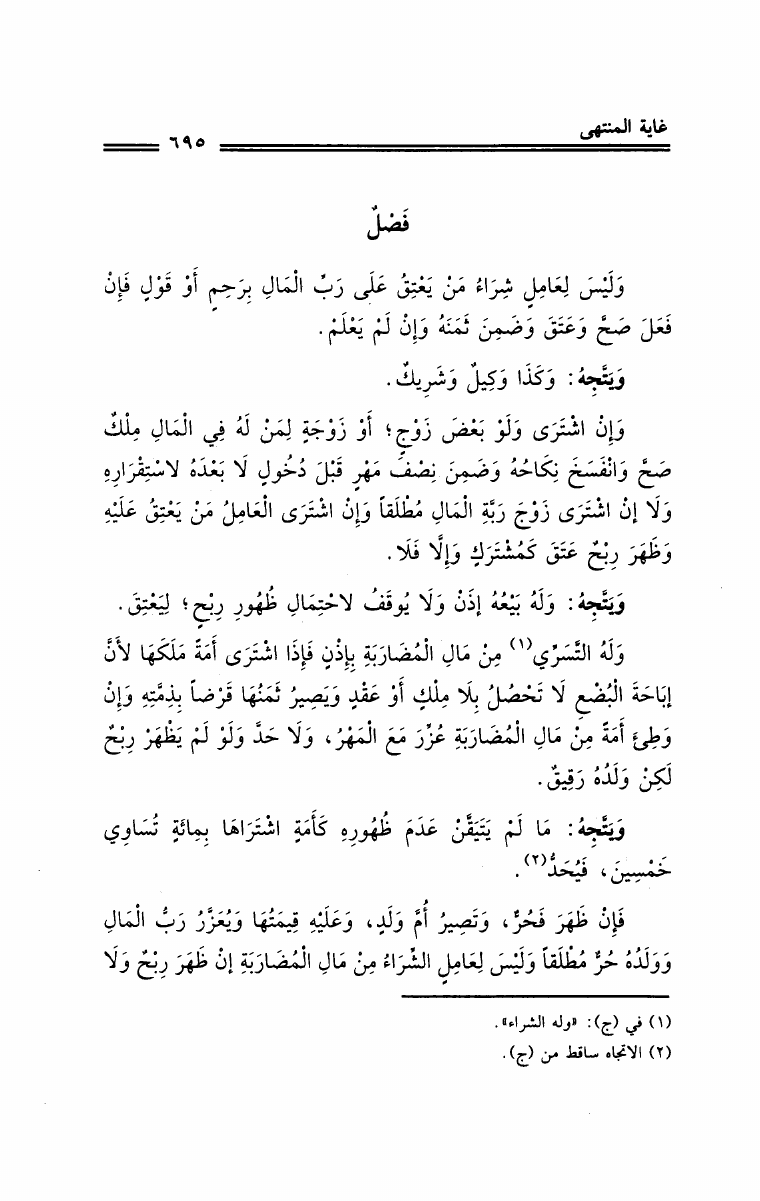 غاية المنتهى
٦٩٥
فَصْلٌ
وَلَيْسَ لِعَامِلٍ شِرَاءُ مَنْ يَعْتِقُ عَلَى رَبِّ الْمَالِ بِرَحِمٍ أَوْ قَوْلٍ فَإِنْ
فَعَلَ صَحَّ وَعَتَقَ وَضَمِنَ ثَمَنَهُ وَإِنْ لَمْ يَعْلَمْ.
وَيَتَّجِهُ: وَكَذَا وَكِيلٌ وَشَرِيكٌ.
وَإِنْ اشْتَرَى وَلَوْ بَعْضَ زَوْجٍ؛ أَوْ زَوْجَةٍ لِمَنْ لَهُ فِي الْمَالِ مِلْكٌ
صَحَّ وَانْفَسَخَ نِكَاحُهُ وَضَمِنَ نِصْفَ مَهْرٍ قَبْلَ دُخُولٍ لَا بَعْدَهُ لاسْتِقْرَارِهِ
وَلَا إنْ اشْتَرَى زَوْجَ رَبَّةِ الْمَالِ مُطْلَقاً وَإِنْ اشْتَرَى الْعَامِلُ مَنْ يَعْتِقُ عَلَيْهِ
وَظَهَرَ رِبْحٌ عَتَقَ كَمُشْتَرَكٍ وَإِلَّا فَلَا.
وَيَتَّجِهُ: وَلَهُ بَيْعُهُ إذَنْ وَلَا يُوقَفُ لاحْتِمَالِ ظُهُورِ رِبْحٍ؛ لِيَعْتِقَ.
وَلَهُ التَّسَرِّي(١) مِنْ مَالِ الْمُضَارَبَةِ بِإِذْنٍ فَإِذَا اشْتَرَى أَمَةً مَلَكَهَا لأَنَّ
إبَاحَةَ الْبُضْعِ لَا تَحْصُلُ بِلَا مِلْكٍ أَوْ عَقْدٍ وَيَصِيرُ ثَمَنُهَا قَرْضاً بِذِمَّتِهِ وَإِنْ
وَطِئَ أَمَةً مِنْ مَالِ الْمُضَارَبَةِ عُزِّرَ مَعَ الْمَهْرُ، وَلَا حَدَّ وَلَوْ لَمْ يَظْهَرْ رِبْحٌ
لَكِنْ وَلَدُهُ رَقِيقٌ.
وَيَتَّجِهُ: مَا لَمْ يَتَيَقَّنْ عَدَمَ ظُهُورِهِ كَأَمَةٍ اشْتَرَاهَا بِمِائَةٍ تُسَاوِي
خَمْسِينَ، فَيُحَدُّ(٢).
فَإِنْ ظَهَرَ فَحُرٌّ، وَتَصِيرُ أُمَّ وَلَدٍ، وَعَلَيْهِ قِيمَتُهَا وَيُعَزَّرُ رَبُّ الْمَالِ
وَوَلَدُهُ حُرٌّ مُطْلَقاً وَلَيْسَ لِعَامِلٍ الشِّرَاءُ مِنْ مَالِ الْمُضَارَبَةِ إنْ ظَهَرَ رِبْحٌ وَلَا
(١) في (ج): «وله الشراء».
(٢) الاتجاه ساقط من (ج).